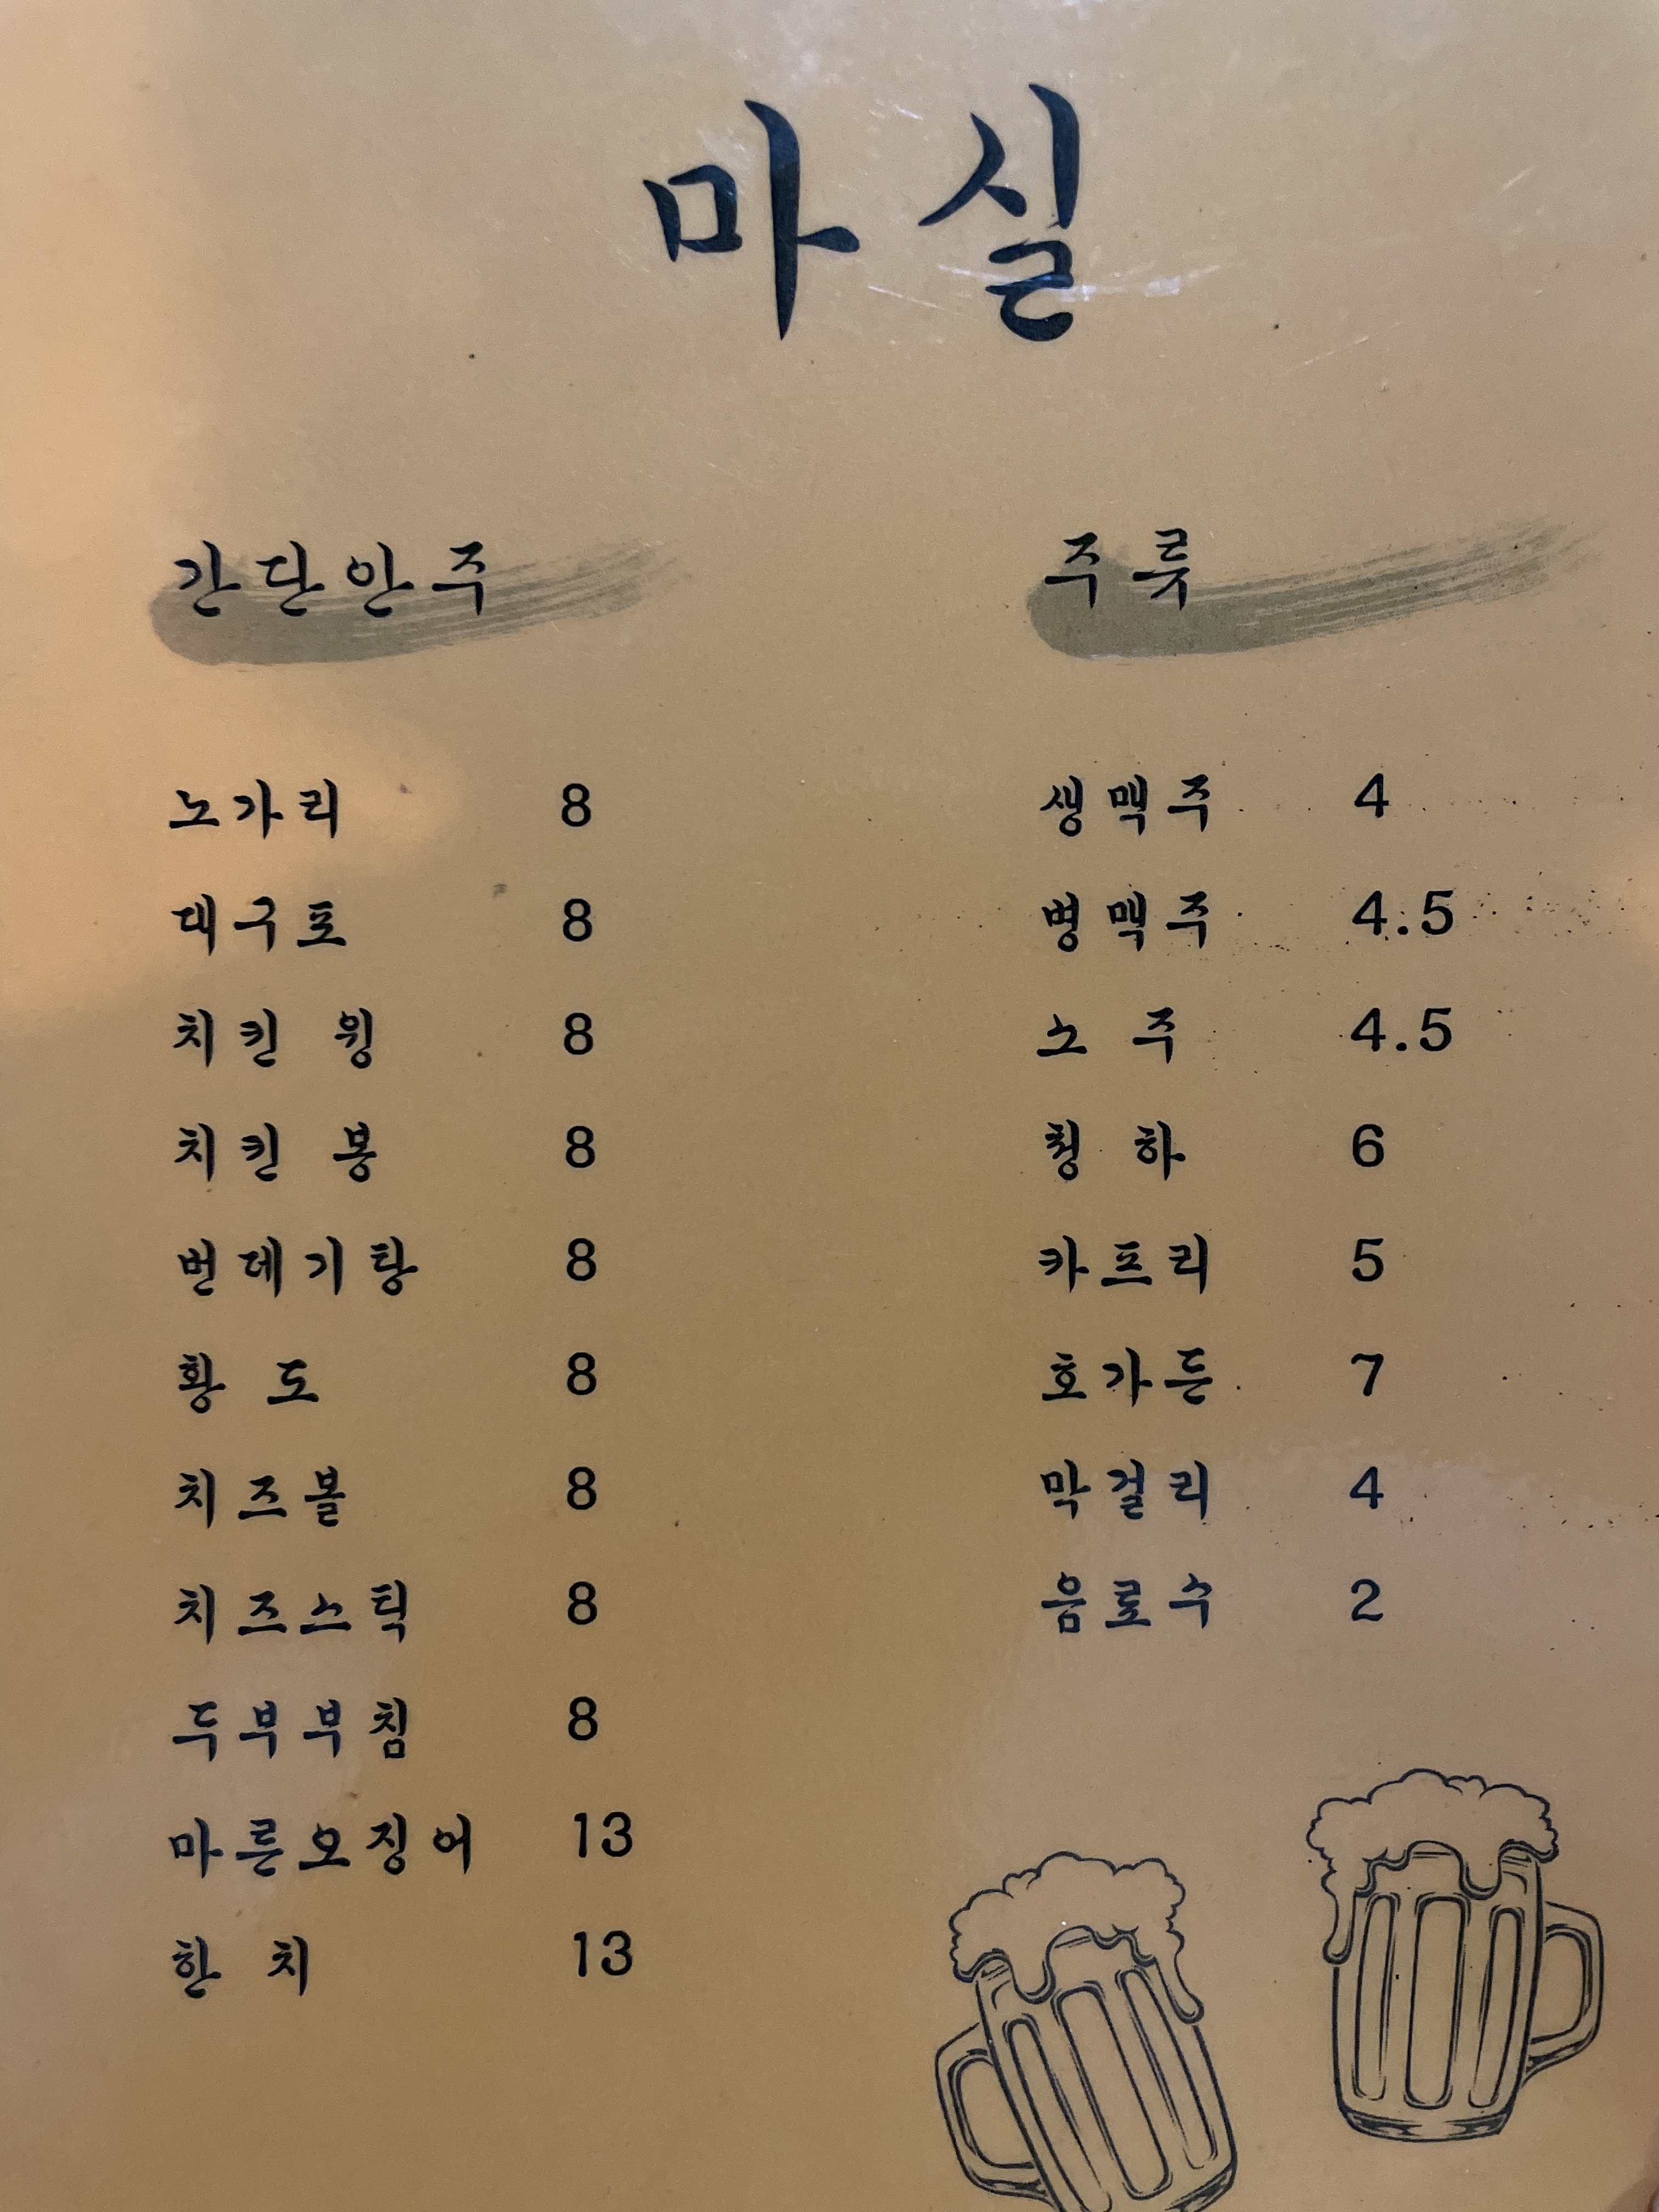 마실
간단안주
노가리 8
대구포 8
치킨 윙 8
치킨 봉 8
번데기탕 8
황 도 8
치즈볼 8
치즈스틱 8
두부부침 8
마른오징어 13
한 치 13
주룻
생맥주 4
병맥주 4.5
소 주 4.5
청 하 6
카프리 5
호가든 7
막걸리 4
음료수 2